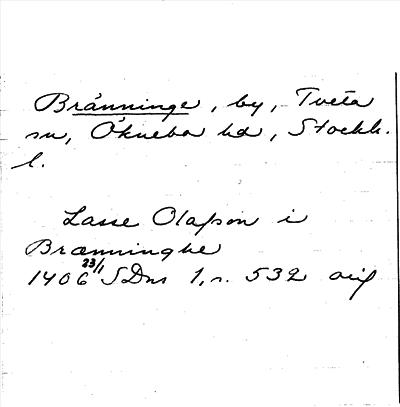 Bränninge, by, Tveta
sn, Öknebo hd, Stockh.
l.
Lasse Olafson i
Brænninghe
1406 23/1 SDns 1, n. 532 orig